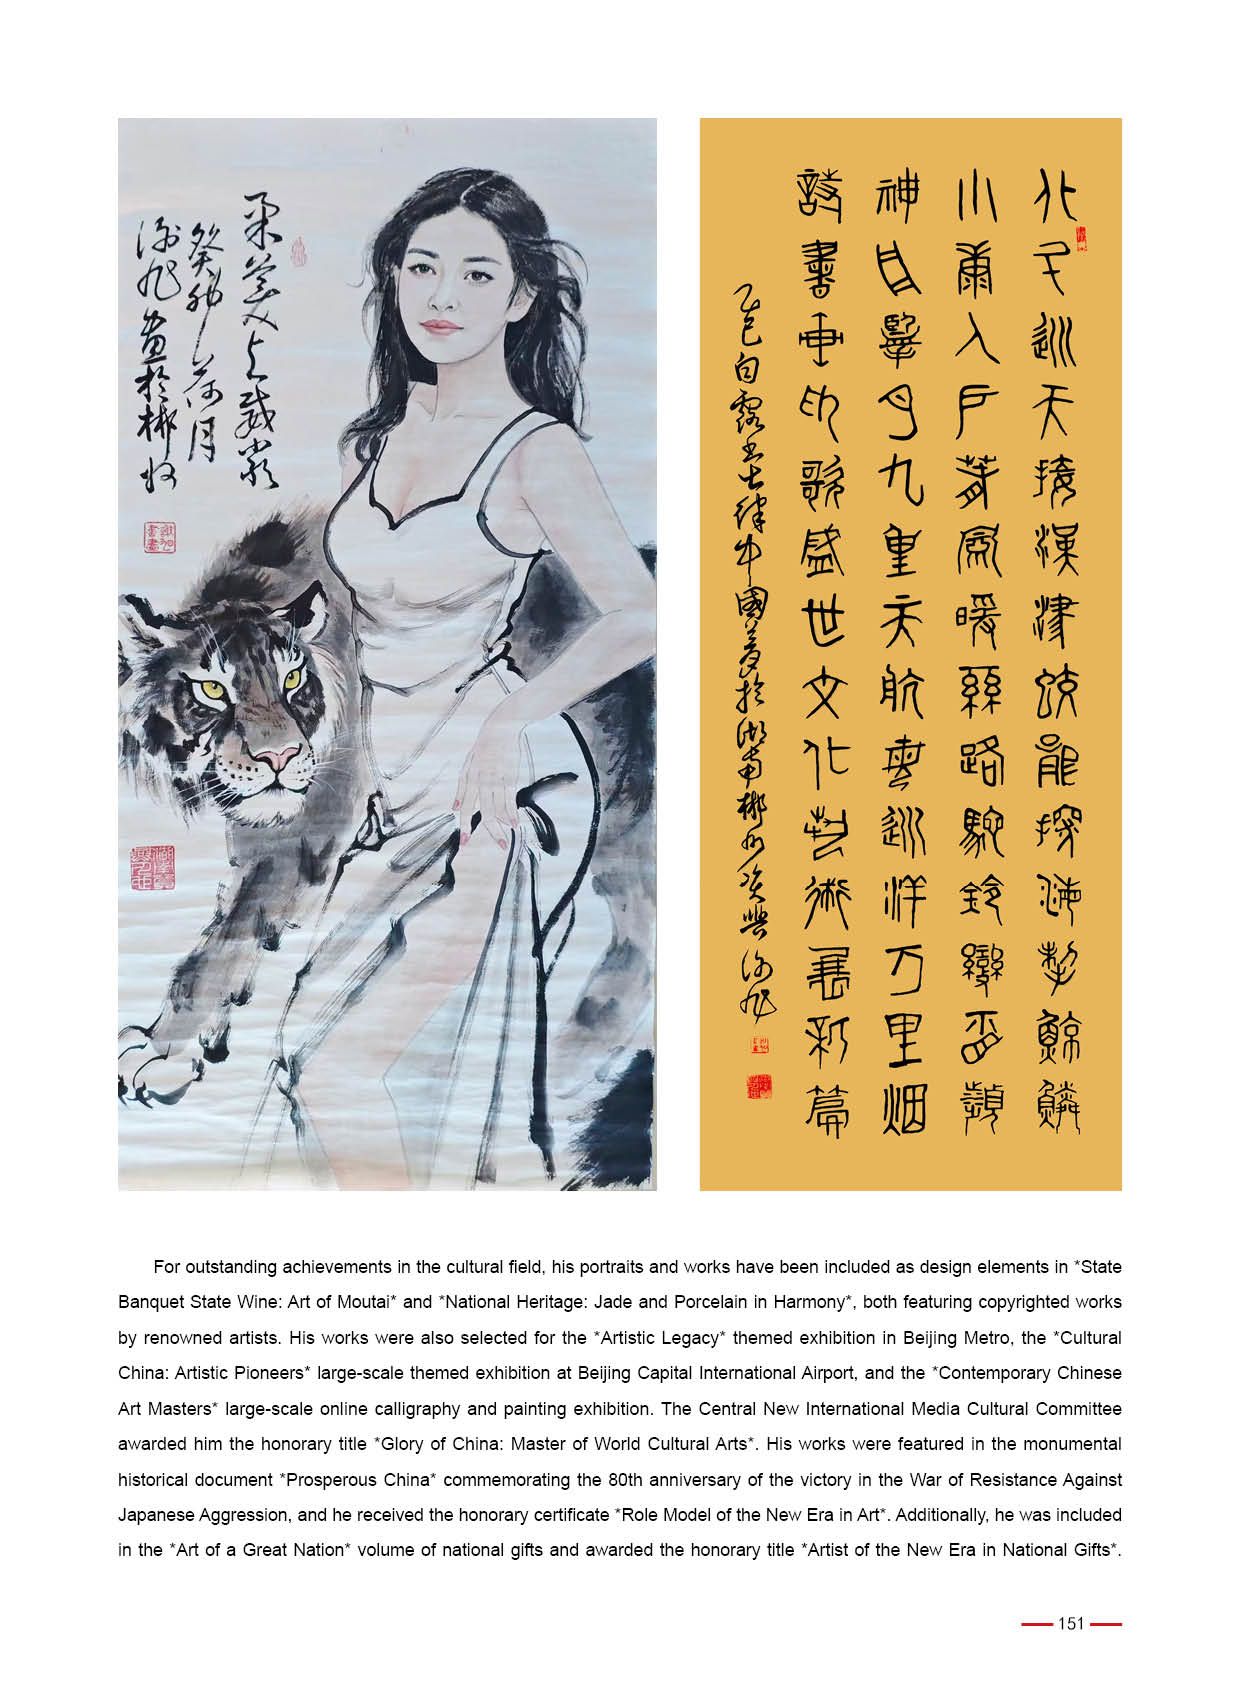 柔美人与威
癸卯荷月
谢旭画於郴州
北斗巡天接漢津蛟龍探海掣鯨鱗
小康入戶春風暖絲路駝鈴盃頻
神舟月九重天航巡洋万里烟
詩書画印歌盛世文化藝術展新篇
乙巳白露书七律中國夢於湖南郴州资興谢旭
For outstanding achievements in the cultural field, his portraits and works have been included as design elements in *State
Banquet State Wine: Art of Moutai* and *National Heritage: Jade and Porcelain in Harmony*, both featuring copyrighted works
by renowned artists. His works were also selected for the *Artistic Legacy* themed exhibition in Beijing Metro, the *Cultural
China: Artistic Pioneers* large-scale themed exhibition at Beijing Capital International Airport, and the *Contemporary Chinese
Art Masters* large-scale online calligraphy and painting exhibition. The Central New International Media Cultural Committee
awarded him the honorary title *Glory of China: Master of World Cultural Arts*. His works were featured in the monumental
historical document *Prosperous China* commemorating the 80th anniversary of the victory in the War of Resistance Against
Japanese Aggression, and he received the honorary certificate *Role Model of the New Era in Art*. Additionally, he was included
in the *Art of a Great Nation* volume of national gifts and awarded the honorary title *Artist of the New Era in National Gifts*.
151